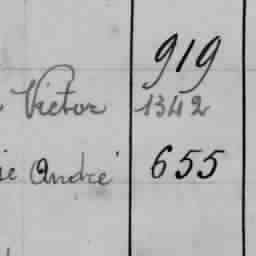 919
Victor 1342
André 655